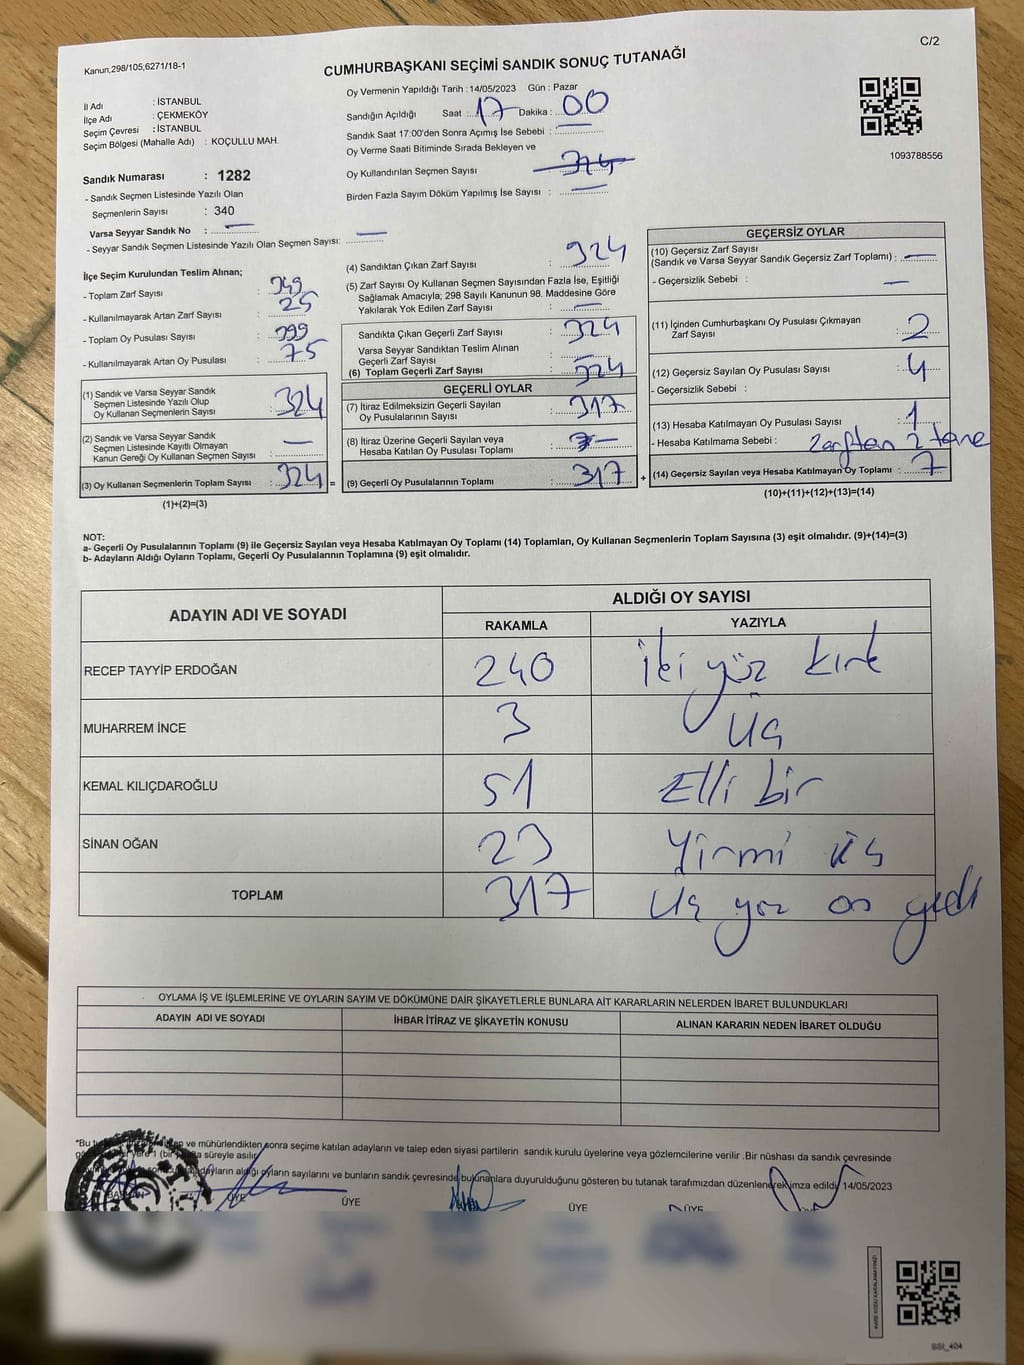 C/2
Kanun,298/105,6271/18-1
CUMHURBAŞKANI SEÇİMİ SANDIK SONUÇ TUTANAĞI
İl Adı : İSTANBUL
İlçe Adı : ÇEKMEKÖY
Seçim Çevresi : İSTANBUL
Seçim Bölgesi (Mahalle Adı) : KOÇULLU MAH.
Sandık Numarası : 1282
- Sandık Seçmen Listesinde Yazılı Olan
Seçmenlerin Sayısı : 340
Varsa Seyyar Sandık No : —
- Seyyar Sandık Seçmen Listesinde Yazılı Olan Seçmen Sayısı: —
Oy Vermenin Yapıldığı Tarih : 14/05/2023 Gün : Pazar
Sandığın Açıldığı Saat : 17 Dakika : 00
Sandık Saat 17:00'den Sonra Açımış İse Sebebi : —
Oy Verme Saati Bitiminde Sırada Bekleyen ve
Oy Kullandırılan Seçmen Sayısı 324
Birden Fazla Sayım Döküm Yapılmış İse Sayısı : —
1093788556
İlçe Seçim Kurulundan Teslim Alınan;
- Toplam Zarf Sayısı : 349
- Kullanılmayarak Artan Zarf Sayısı : 25
- Toplam Oy Pusulası Sayısı : 399
- Kullanılmayarak Artan Oy Pusulası : 75
(1) Sandık ve Varsa Seyyar Sandık
Seçmen Listesinde Yazılı Olup
Oy Kullanan Seçmenlerin Sayısı : 324
(2) Sandık ve Varsa Seyyar Sandık
Seçmen Listesinde Kayıtlı Olmayan
Kanun Gereği Oy Kullanan Seçmen Sayısı : —
(3) Oy Kullanan Seçmenlerin Toplam Sayısı : 324 =
(1)+(2)=(3)
(4) Sandıktan Çıkan Zarf Sayısı : 324
(5) Zarf Sayısı Oy Kullanan Seçmen Sayısından Fazla İse, Eşitliği
Sağlamak Amacıyla; 298 Sayılı Kanunun 98. Maddesine Göre
Yakılarak Yok Edilen Zarf Sayısı : —
Sandıkta Çıkan Geçerli Zarf Sayısı : 324
Varsa Seyyar Sandıktan Teslim Alınan
Geçerli Zarf Sayısı :
(6) Toplam Geçerli Zarf Sayısı : 324
GEÇERLİ OYLAR
(7) İtiraz Edilmeksizin Geçerli Sayılan
Oy Pusulalarının Sayısı : 317
(8) İtiraz Üzerine Geçerli Sayılan veya
Hesaba Katılan Oy Pusulası Toplamı : —
(9) Geçerli Oy Pusulalarının Toplamı : 317 +
GEÇERSİZ OYLAR
(10) Geçersiz Zarf Sayısı
(Sandık ve Varsa Seyyar Sandık Geçersiz Zarf Toplamı) : —
- Geçersizlik Sebebi : —
(11) İçinden Cumhurbaşkanı Oy Pusulası Çıkmayan
Zarf Sayısı : 2
(12) Geçersiz Sayılan Oy Pusulası Sayısı : 4
- Geçersizlik Sebebi :
(13) Hesaba Katılmayan Oy Pusulası Sayısı : 1
- Hesaba Katılmama Sebebi : Zarftan 2 tane
(14) Geçersiz Sayılan veya Hesaba Katılmayan Oy Toplamı : 7
(10)+(11)+(12)+(13)=(14)
NOT:
a- Geçerli Oy Pusulalarının Toplamı (9) ile Geçersiz Sayılan veya Hesaba Katılmayan Oy Toplamı (14) Toplamları, Oy Kullanan Seçmenlerin Toplam Sayısına (3) eşit olmalıdır. (9)+(14)=(3)
b- Adayların Aldığı Oyların Toplamı, Geçerli Oy Pusulalarının Toplamına (9) eşit olmalıdır.
ADAYIN ADI VE SOYADI ALDIĞI OY SAYISI
RAKAMLA YAZIYLA
RECEP TAYYİP ERDOĞAN 240 İki yüz kırk
MUHARREM İNCE 3 Üç
KEMAL KILIÇDAROĞLU 51 Elli bir
SİNAN OĞAN 23 Yirmi üç
TOPLAM 317 Üç yüz on yedi
OYLAMA İŞ VE İŞLEMLERİNE VE OYLARIN SAYIM VE DÖKÜMÜNE DAİR ŞİKAYETLERLE BUNLARA AİT KARARLARIN NELERDEN İBARET BULUNDUKLARI
ADAYIN ADI VE SOYADI İHBAR İTİRAZ VE ŞİKAYETİN KONUSU ALINAN KARARIN NEDEN İBARET OLDUĞU
*Bu ve mühürlendikten sonra seçime katılan adayların ve talep eden siyasi partilerin sandık kurulu üyelerine veya gözlemcilerine verilir .Bir nüshası da sandık çevresinde
yere 1 (bir) süreyle asılır.
adayların aldığı oyların sayılarını ve bunların sandık çevresinde bulunanlara duyurulduğunu gösteren bu tutanak tarafımızdan düzenlenerek imza edildi. 14/05/2023
BAŞKAN ÜYE ÜYE ÜYE ÜYE